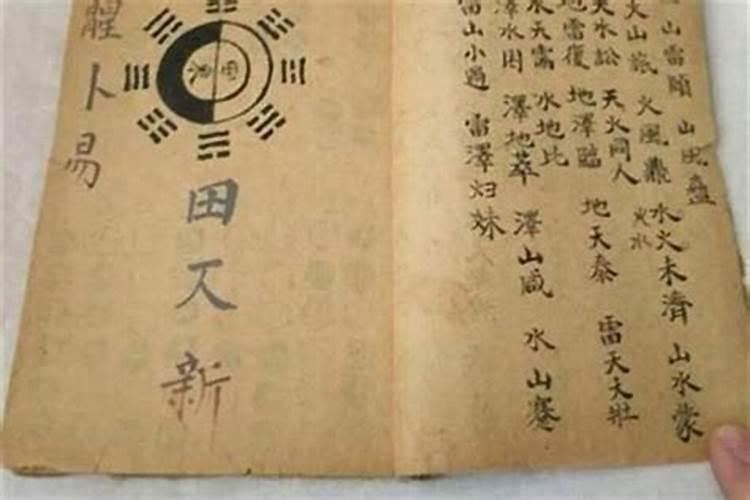 山雷頤
山風蠱
火山旅
火風鼎
火水
水火未濟
山水蒙
天水訟
天火同人
地天泰
雷天大壯
地雷復
地澤臨
水天需
水地比
澤水困
澤地萃
澤山咸
水山蹇
雷山小過
雷澤归妹
田
新
卜易